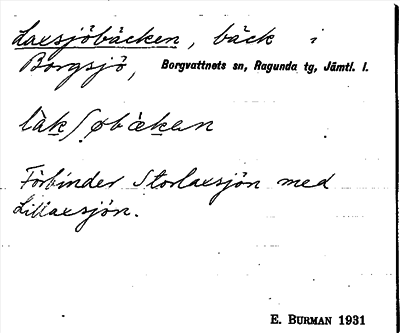 Laxsjöbäcken, bäck i
Borgsjö, Borgvattnets sn, Ragunda tg, Jämtl. l.
Förbinder Storlaxsjön med
Lillaxsjön.
E. BURMAN 1931